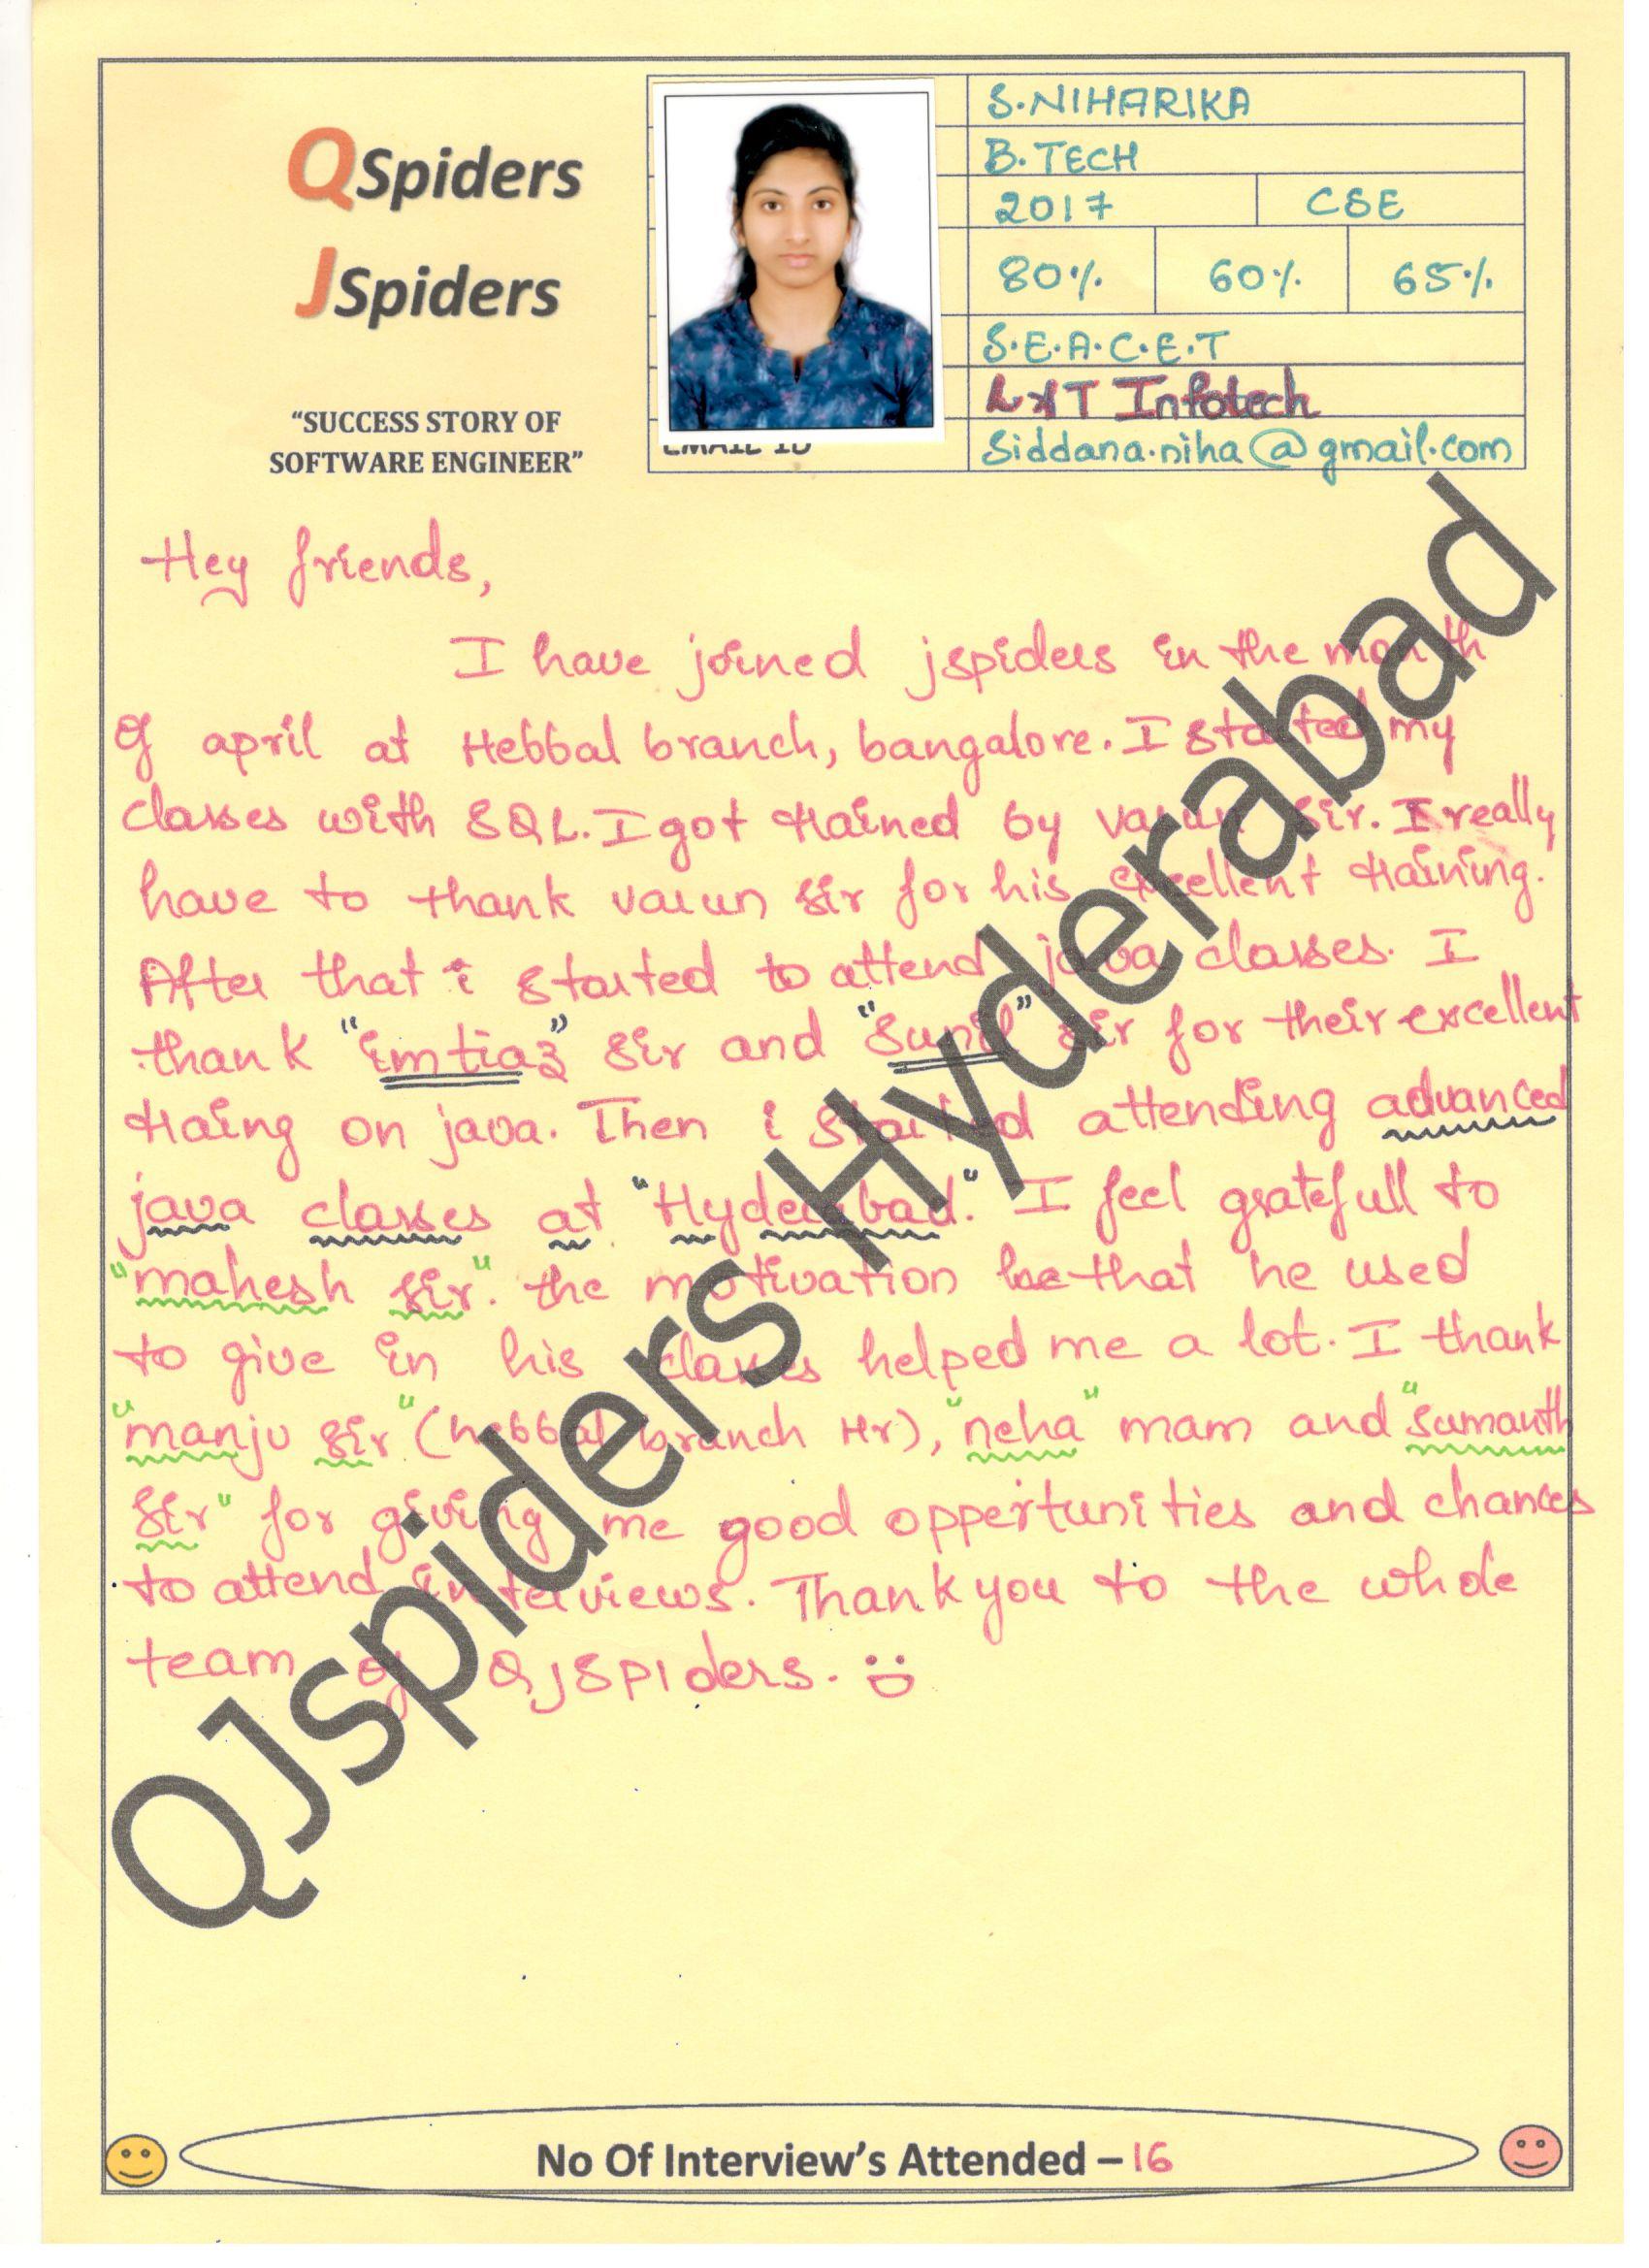 QSpiders
JSpiders
"SUCCESS STORY OF
SOFTWARE ENGINEER"
S.NIHARIKA
B.TECH
2017 CSE
80% 60% 65%
S.E.A.C.E.T
L&T Infotech
EMAIL ID
Siddana.niha@gmail.com
Hey friends,
I have joined jspiders in the month
of april at Hebbal branch, bangalore. I started my
classes with SQL. I got trained by varun sir. I really
have to thank varun sir for his excellent training.
After that i started to attend java classes. I
thank "imtiaz" sir and "Sunil" sir for their excellent
traing on java. Then i started attending advanced
java classes at "Hyderabad". I feel gratefull to
"mahesh sir". the motivation that he used
to give in his classes helped me a lot. I thank
"manju sir" (hebbal branch Hr), "neha" mam and "sumanth
sir" for giving me good oppertunities and chances
to attend interviews. Thank you to the whole
team of QJSPIders.
QJspiders Hyderabad
No Of Interview's Attended – 16